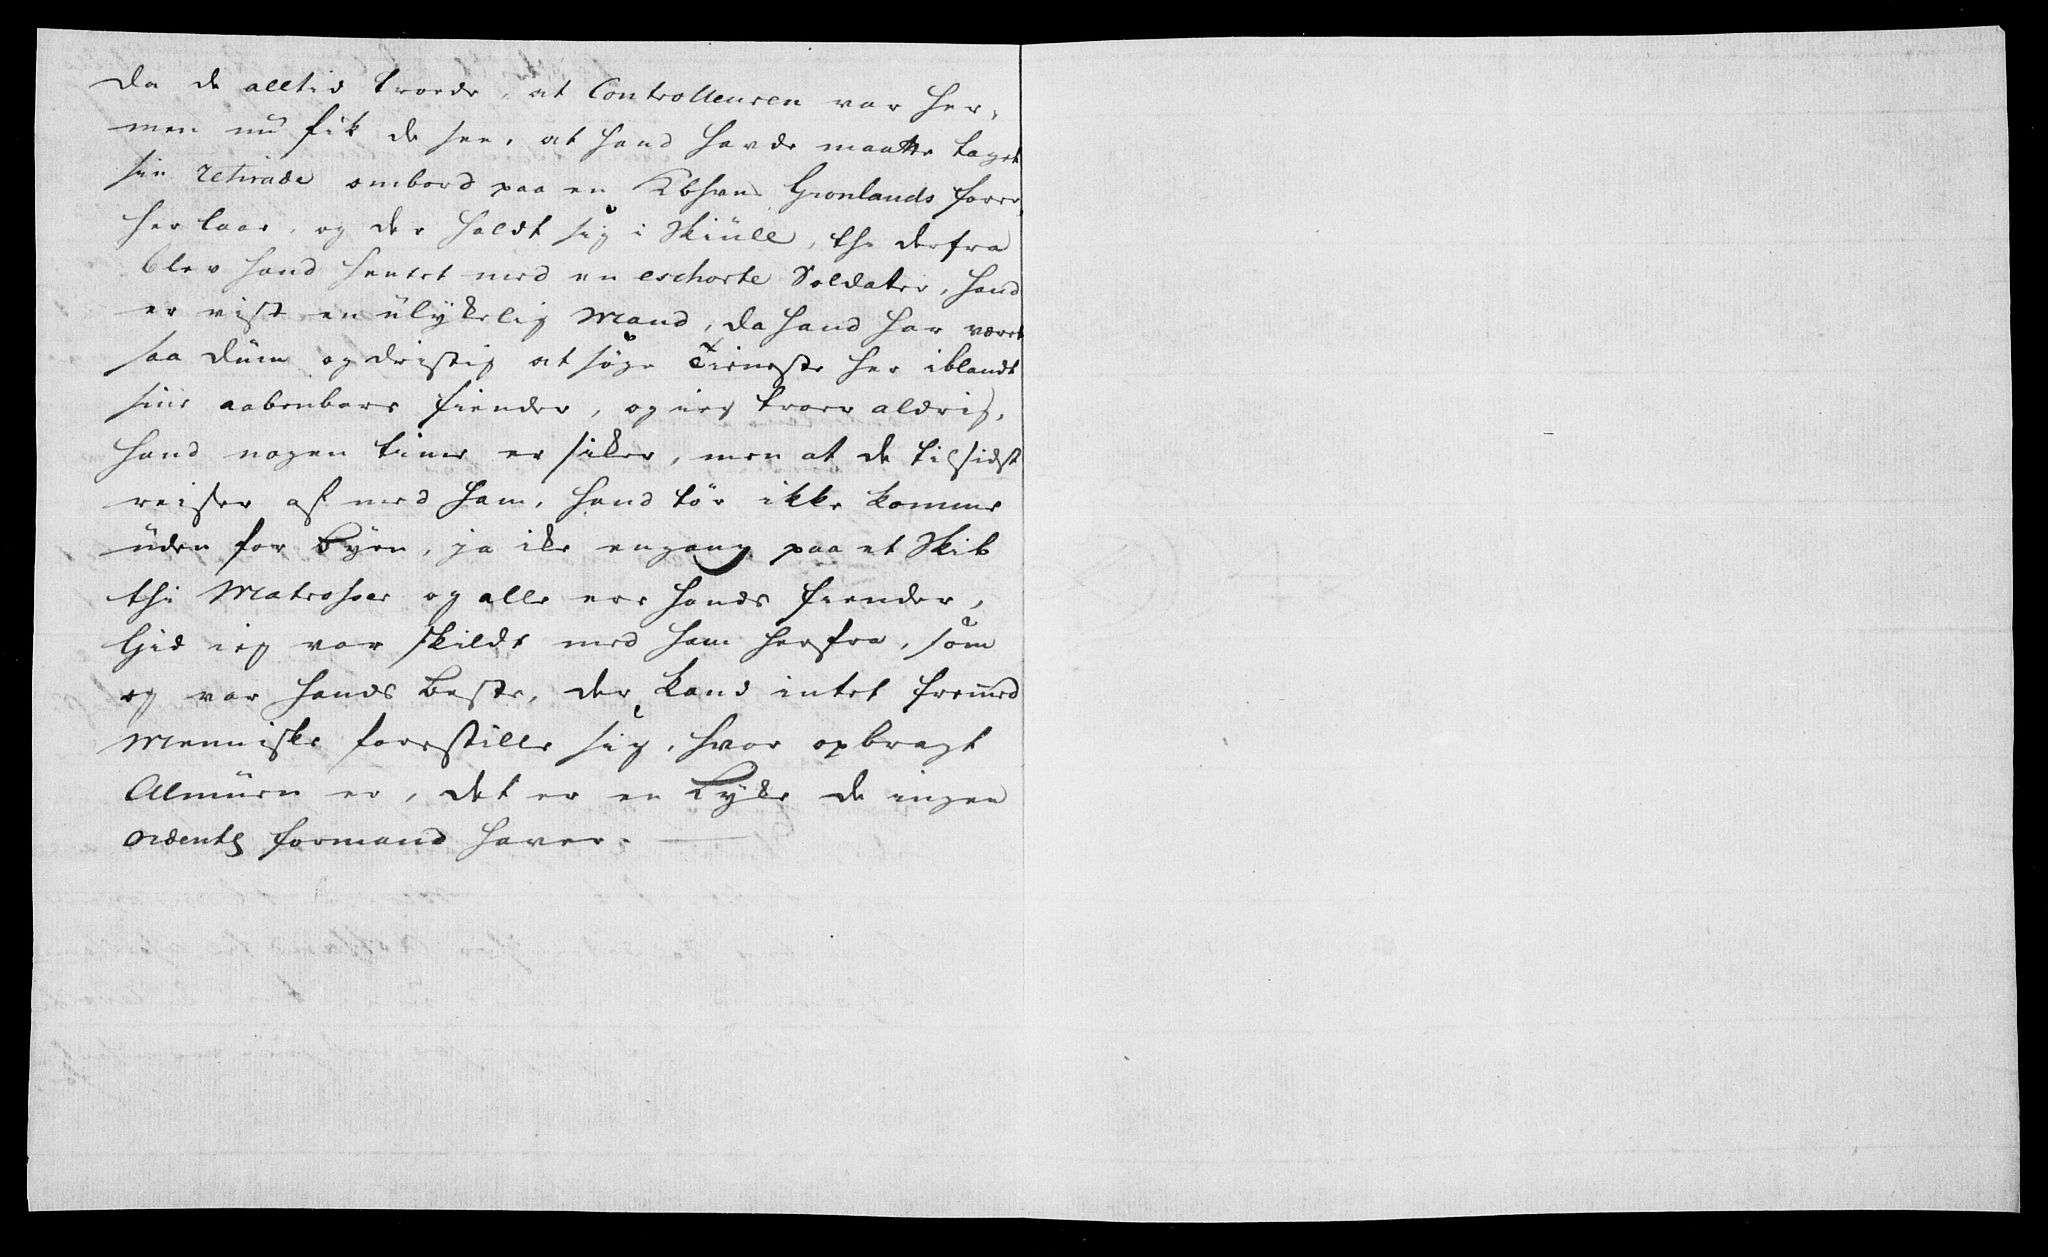 da de alltid troede, at Controlleuren var her,
men nu fik de see, at hand havde maatte taget
sin retirade ombord paa en Kbhvns Grønlands farer,
her laae, og der holdt sig i Skiull, thi derfra
blev hand hentet med en eschorte Soldater, hand
er vist en ulykelig Mand, da hand har været
saa dum og dristig at søge Tieneste her iblandt
sine aabenbare fiender, og ieg troer aldrig,
hand nogen time er siker, men at de tilsidst
reiser af med ham, hand tør ikke komme
uden for Byen, ja ike engang paa et Skib
thi Matroser og alle ere hands fiender,
Gid ieg var skildt med ham herfra, som
og var hands beste, der kand intet fremed
Menniske forestille sig, hvor opbragt
Almuen er, det er en Lyke de ingen
ordentl formand haver.